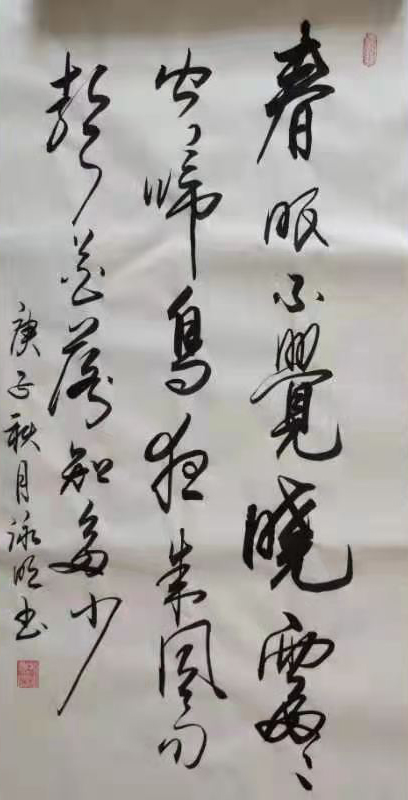 春眠不覺曉處々
聞啼鳥夜来風雨
聲花落知多少
庚子秋月明书